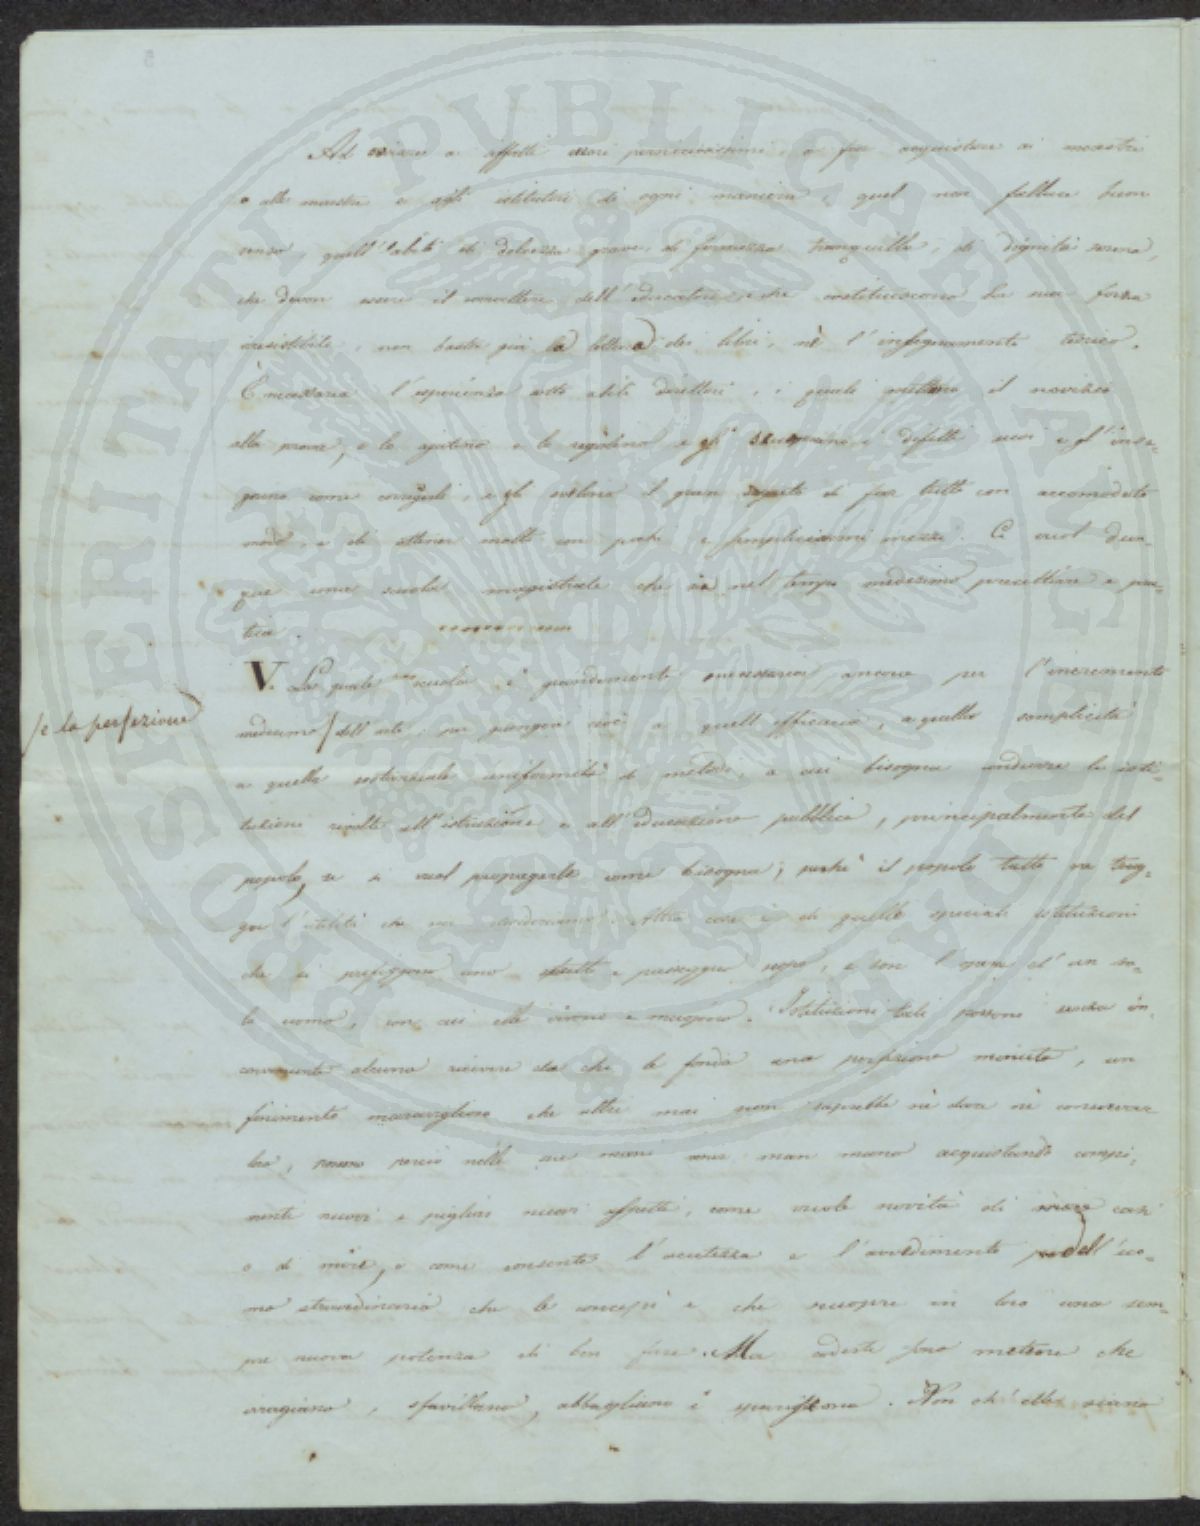 Ad ovviare a effetti così perniciosissimi, a far acquistare ai maestri
e alle maestre e agli istitutori di ogni maniera, quel non fallace buon
senso, quell'abito di dolcezza grave, di fermezza tranquilla, di dignità serena,
che devon essere il carattere dell'educatore, e che costituiscono la sua forza
irresistibile, non basta già la lettura dei libri, nè l'insegnamento teorico.
È necessaria l'esperienza sotto abili direttori, i quali mettano il novizio
alla prova, e lo ajutino e lo regolino e gli i difetti suoi e gl'inse-
gnino come correggerli, e gli svelino il gran segreto di far tutto con accomodato
modo, e di ottener molto con pochi e semplicissimi mezzi. Ci vuol dun-
que una scuola magistrale che sia nel tempo medesimo precettiva e pra-
tica.
V. La quale scuola è grandemente necessaria ancora per l'incremento
medesimo / dell'arte: cioè a quell'efficacia, a quella semplicità
/e la perfezione
a quella sostanziale uniformità di metodi, a cui bisogna condurre le isti-
tuzioni rivolte all'istruzione e all'educazione pubblica, principalmente del
popolo, se si vuol propagarle come bisogna; perchè il popolo tutto ne trag-
ga l'utilità che noi Altra cosa è di quelle speciali istituzioni
che si prefiggono uno e passeggero scopo, e son l'opera d'un so-
lo uomo, con cui elle vivono e muojono. Istituzioni tali possono senza in-
conveniente alcuno ricevere da chi le fonda una perfezione minuta, un
finimento maraviglioso che altri mai non saprebbe nè dare nè conservar
loro, possono perciò nelle sue mani man mano acquistando compi-
menti nuovi e pigliar nuovi aspetti, come vuole novità di casi
o di mire, e come consente l'acutezza e l'avvedimento dell'uo-
mo straordinario che le concepì e che scuopre in loro una sem-
pre nuova potenza di ben fare. Ma codeste sono meteore che
sfavillano, abbagliano e spariscono. Non ch'elle siano
ROSPERITATI PUBLICAE AUGENDAE